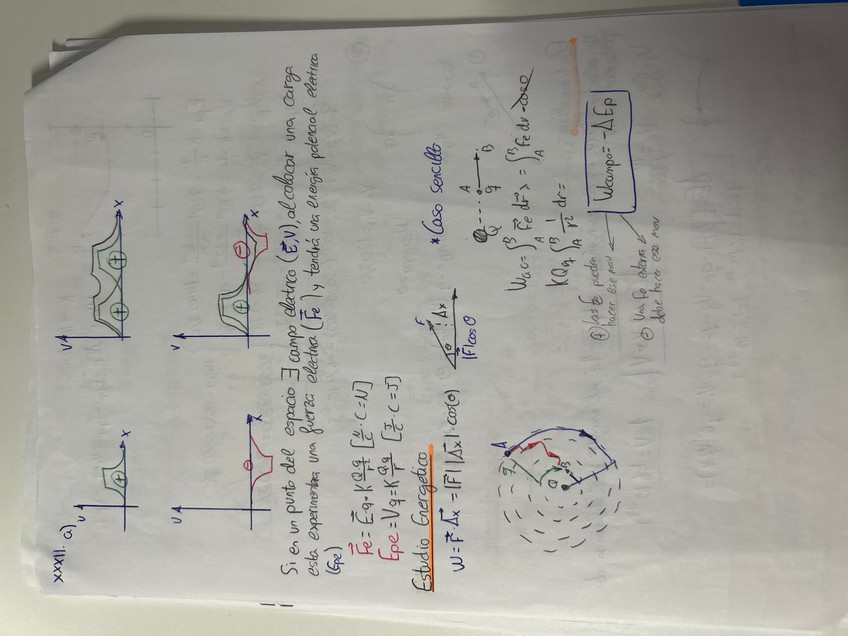 XXXII. a)
V
x
⊕
V
x
⊕ ⊕
V
x
⊖
V
x
⊕
⊖
Si en un punto del espacio ∃ campo electrico (E⃗,V), al colocar una carga
esta experimentara una fuerza electrica (F⃗e) y tendrá una energía potencial electrica
(Epe)
F⃗e = E⃗·q = K Qq/r² [N/C · C = N]
Epe = V q = K Qq/r [J/C · C = J]
Estudio Energetico
W = F⃗·Δx⃗ = |F⃗| |Δx⃗| · cos(θ)
F
θ
Δx
|F|cosθ
* Caso sencillo
Q A B
q
= ∫_A^B F⃗e dr⃗ = ∫_A^B Fe dr · cos0
KQq ∫_A^B 1/r² dr =
Wcampo = -ΔEp
⊕ las Fe pueden
hacer ese mov
⊖ Una Fo externa
debe hacer ese mov
A
q
Q
B